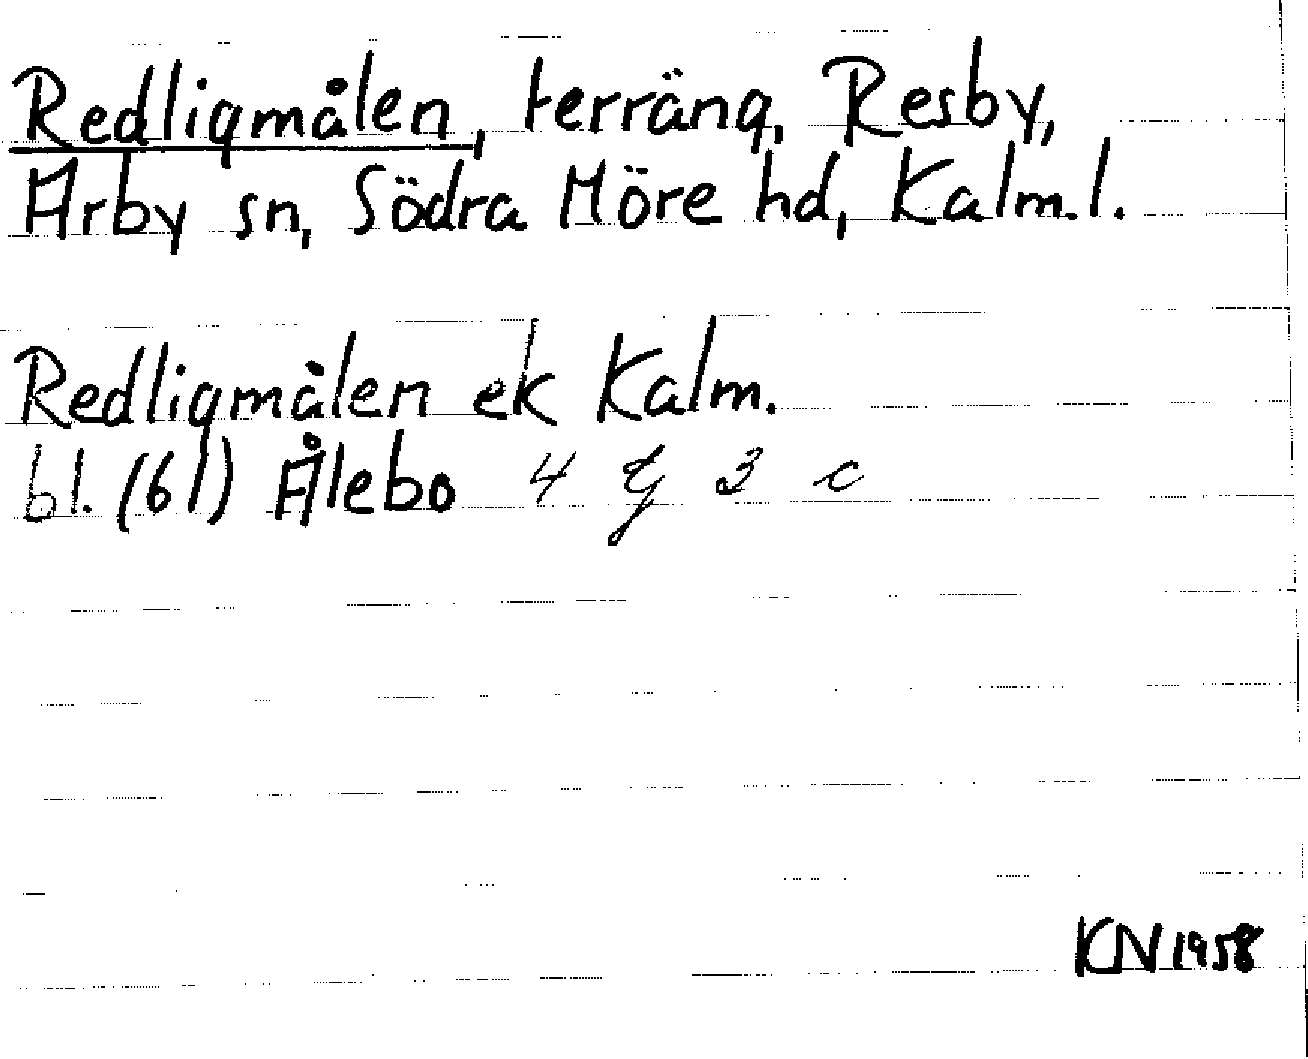 Redligmålen, terräng, Resby,
Arby sn, Södra Möre hd, Kalm. l.
Redligmålen ek Kalm.
bl. (61) Ålebo 4 g 3 c
KN 1958